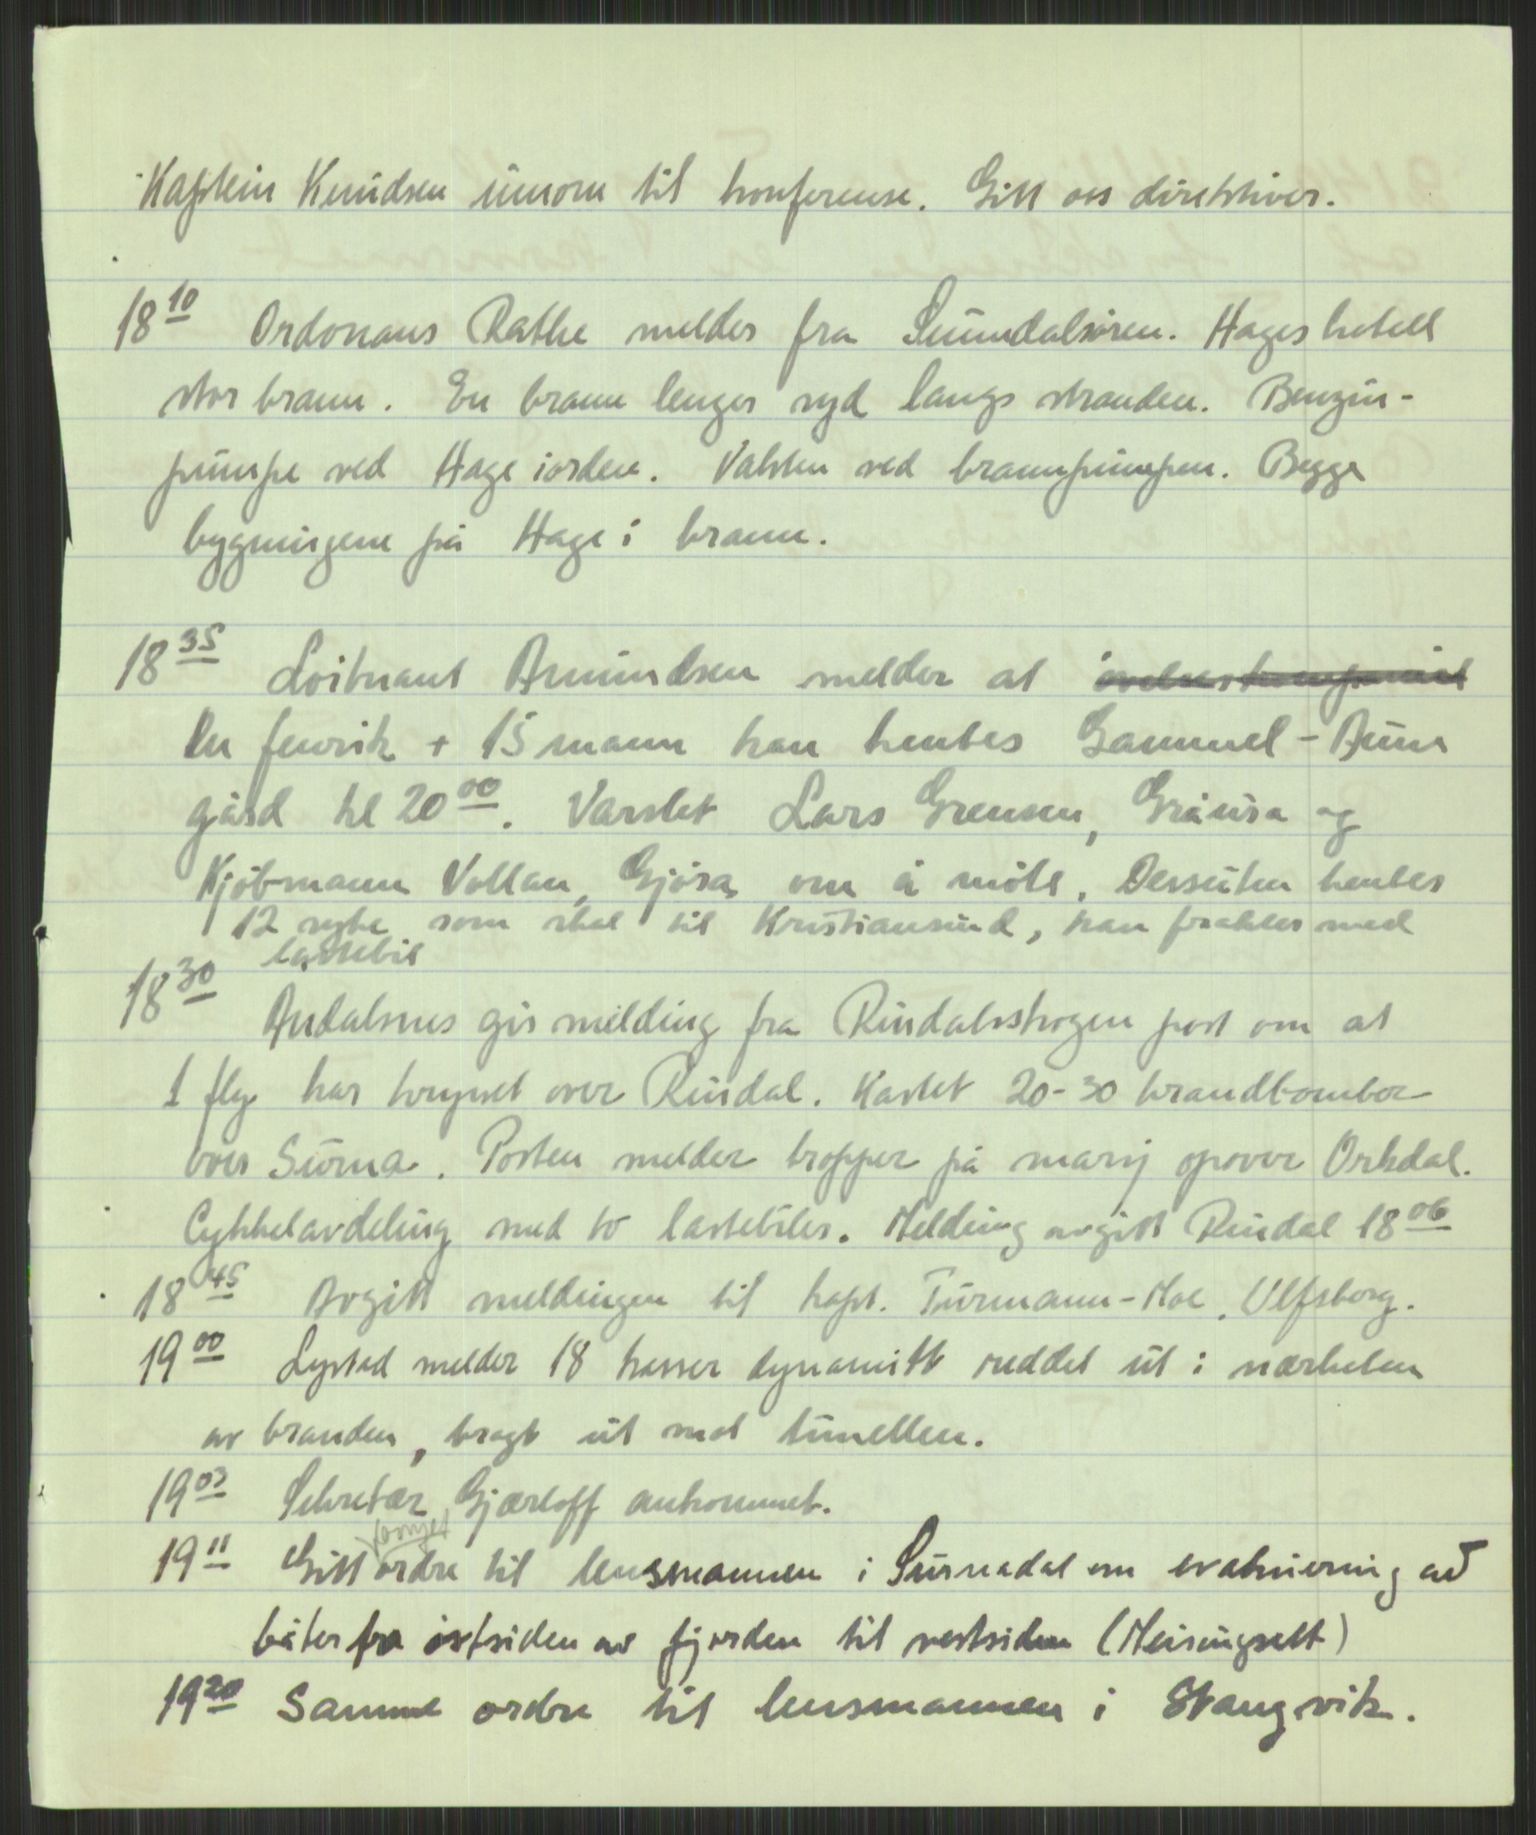 Kaptein Knudsen innom til konferense. Gitt oss direktiver.
18 10 Ordonans Rathe melder fra Sunndalsøren. Hages hotell
stor brann. En brann lenger syd langs stranden. Benzin-
pumpe ved Hage i orden. Vakten ved brannpumpen. Begge
bygningene på Hage i brann.
18 35 Løitnant Amundsen melder at øvelseskompaniet
En fenrik + 15 mann kan hentes Gammel-Aune
gård kl 20 00. Varslet Lars Grensen, Gråura og
Kjøbmann Vollan, Gjøra om å møte. Dessuten hentes
12 syke som skal til Kristiansund, kan fraktes med
lastebil
18 30 Andalsnes gir melding fra Rindalsskogen post om at
1 fly har krysset over Rindal. Kastet 20-30 brandbomber
over Surna. Posten melder tropper på marsj opover Orkdal.
Cykkelavdeling med to lastebiler. Melding avgitt Rindal 18 06
18 45 Avgitt meldingen til kapt. Turmann-Moe, Ulfsborg.
19 00 Lystad melder 18 kasser dynamitt reddet ut i nærheten
av branden, bragt ut mot tunellen.
19 03 Sekretær Gjærloff ankommet.
19 11 Gitt fornyet ordre til lensmannen i Surnadal om evakuering av
båter fra østsiden av fjorden til vestsiden (Meisingset)
19 20 Samme ordre til lensmannen i Stangvik.